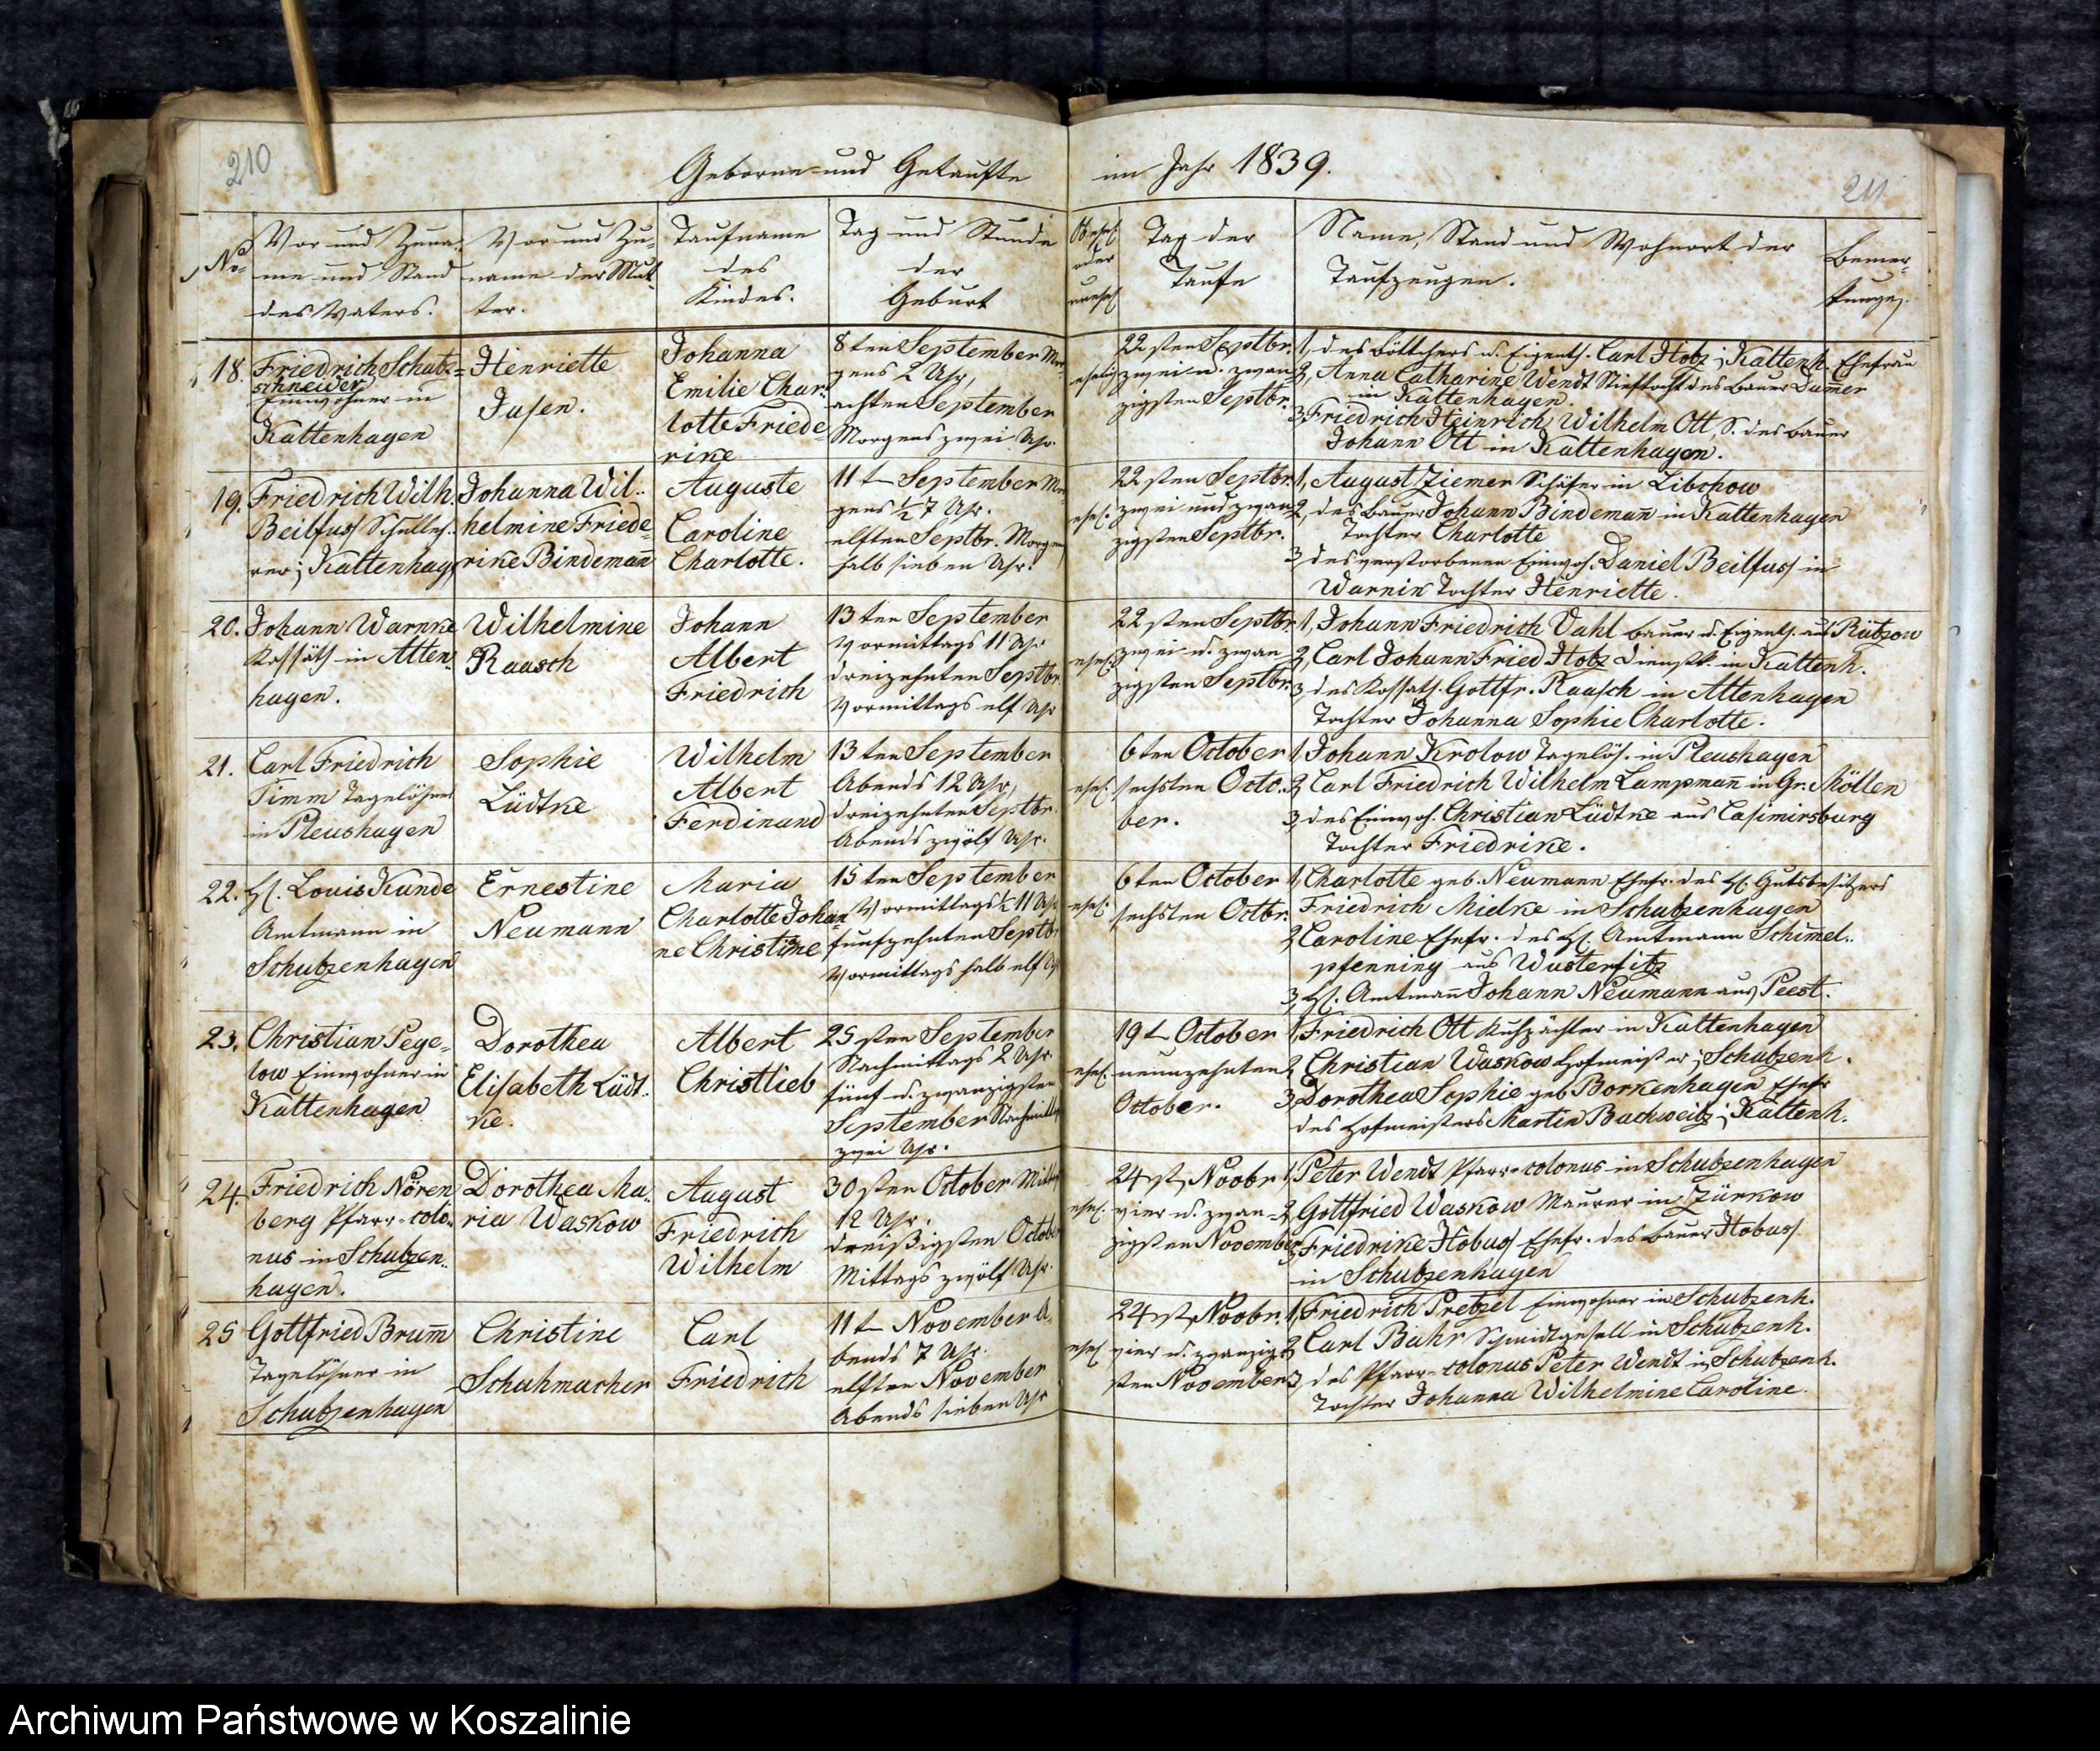 210
Geborne und Getaufte
im Jahr 1839.
211
No.
Vor und Zuna-
me und Stand
des Vaters.
Vor und Zu-
name der Mut-
ter.
Taufname
des
Kindes.
Tag und Stunde
der
Geburt
ehel.
oder
unehel.
Tag der
Taufe
Name, Stand und Wohnort der
Taufzeugen.
Bemer-
kungen.
18.
Friedrich Schulz=
schneider
Einwohner in
Kaltenhagen
Henriette
Jasen.
Johanna
Emilie Char-
lotte Friede-
rike
8ten September Mor-
gens 2 Uhr,
achten September
Morgens zwei Uhr.
ehelich
22sten Septbr.
zwei u. zwan-
zigsten Septbr.
1, des Böttchers u. Eigenth. Carl Hotz i. Kaltenh. Ehefrau
2, Anna Catharine Wendt Stieftocht. des Bauer Dummer
in Kaltenhagen.
3, Friedrich Heinrich Wilhelm Ott, S. des Bauer
Johann Ott in Kaltenhagen.
19.
Friedrich Wilh.
Beilfuss Schulleh-
rer i. Kaltenhag.
Johanna Wil-
helmine Friede-
rike Bindemann
Auguste
Caroline
Charlotte.
11t September Mor-
gens ½ 7 Uhr.
elften Septbr. Morgens
halb sieben Uhr.
ehel.
22sten Septbr.
zwei und zwan-
zigsten Septbr.
1, August Ziemer Schäfer in Libchow
2, des Bauer Johann Bindemann in Kaltenhagen
Tochter Charlotte
3, des verstorbenen Einwoh. Daniel Beilfuss in
Warnin Tochter Henriette.
20.
Johann Warnke
Kossäth in Alten-
hagen.
Wilhelmine
Raasch
Johann
Albert
Friedrich
13ten September
Vormittags 11 Uhr
dreizehnten Septbr.
Vormittags elf Uhr
ehel.
22sten Septbr.
zwei u. zwan-
zigsten Septbr.
1, Johann Friedrich Vahl Bauer u. Eigenth. aus Rützow
2, Carl Johann Fried. Hotz Dienstk. in Kaltenh.
3, des Kossäth. Gottfr. Raasch in Altenhagen
Tochter Johanna Sophie Charlotte.
21.
Carl Friedrich
Timm Tagelöhner
in Pleushagen
Sophie
Lüdtke
Wilhelm
Albert
Ferdinand
13ten September
Abends 12 Uhr,
dreizehnten Septbr.
Abends zwölf Uhr.
ehel.
6ten October
sechsten Octo-
ber.
1, Johann Krolow Tagelöh. in Pleushagen
2, Carl Friedrich Wilhelm Lampmann in Gr. Möllen
3, des Einwoh. Christian Lüdtke aus Casimirsburg
Tochter Friedrike.
22.
H. Louis Kunde
Amtmann in
Schulzenhagen
Ernestine
Neumann
Maria
Charlotte Johan-
ne Christine
15ten September
Vormittags ½ 11 Uhr
funfzehnten Septbr.
Vormittags halb elf Uhr
ehel.
6ten October
sechsten Octbr.
1, Charlotte geb. Neumann Ehefr. des H. Gutsbesitzers
Friedrich Mielke in Schulzenhagen
2, Caroline Ehefr. des H. Amtmann Schimmel-
pfenning aus Wusterwitz
3, H. Amtmann Johann Neumann aus Peest.
23.
Christian Pege-
low Einwohner in
Kaltenhagen
Dorothea
Elisabeth Lüdt-
ke.
Albert
Christlieb
25sten September
Nachmittags 2 Uhr.
fünf u. zwanzigsten
September Nachmittags
zwei Uhr.
ehel.
19t October
neunzehnten
October.
1, Friedrich Ott Kuhpächter in Kaltenhagen
2, Christian Waskow Hofmeister i. Schulzenh.
3, Dorothea Sophie geb. Borkenhagen Ehefr.
des Hofmeisters Martin Backweitz i. Kaltenh.
24.
Friedrich Nören-
berg Pfarr-colo-
nus in Schulzen-
hagen.
Dorothea Ma-
ria Waskow
August
Friedrich
Wilhelm
30sten October Mittags
12 Uhr.
dreißigsten October
Mittags zwölf Uhr.
ehel.
24st. Novbr.
vier u. zwan-
zigsten November
1, Peter Wendt Pfarr-colonus in Schulzenhagen
2, Gottfried Waskow Maurer in Zürkow
3, Friedrike Hobus Ehefr. des Bauer Hobus
in Schulzenhagen
25
Gottfried Brumm
Tagelöhner in
Schulzenhagen
Christine
Schuhmacher
Carl
Friedrich
11t November A-
bends 7 Uhr.
elften November
Abends sieben Uhr
ehel.
24st. Novbr.
vier u. zwanzig-
sten November
1, Friedrich Pretzel Einwohner in Schulzenh.
2, Carl Bahr Schmidtgesell in Schulzenh.
3, des Pfarr-colonus Peter Wendt in Schulzenh.
Tochter Johanna Wilhelmine Caroline.
Archiwum Państwowe w Koszalinie